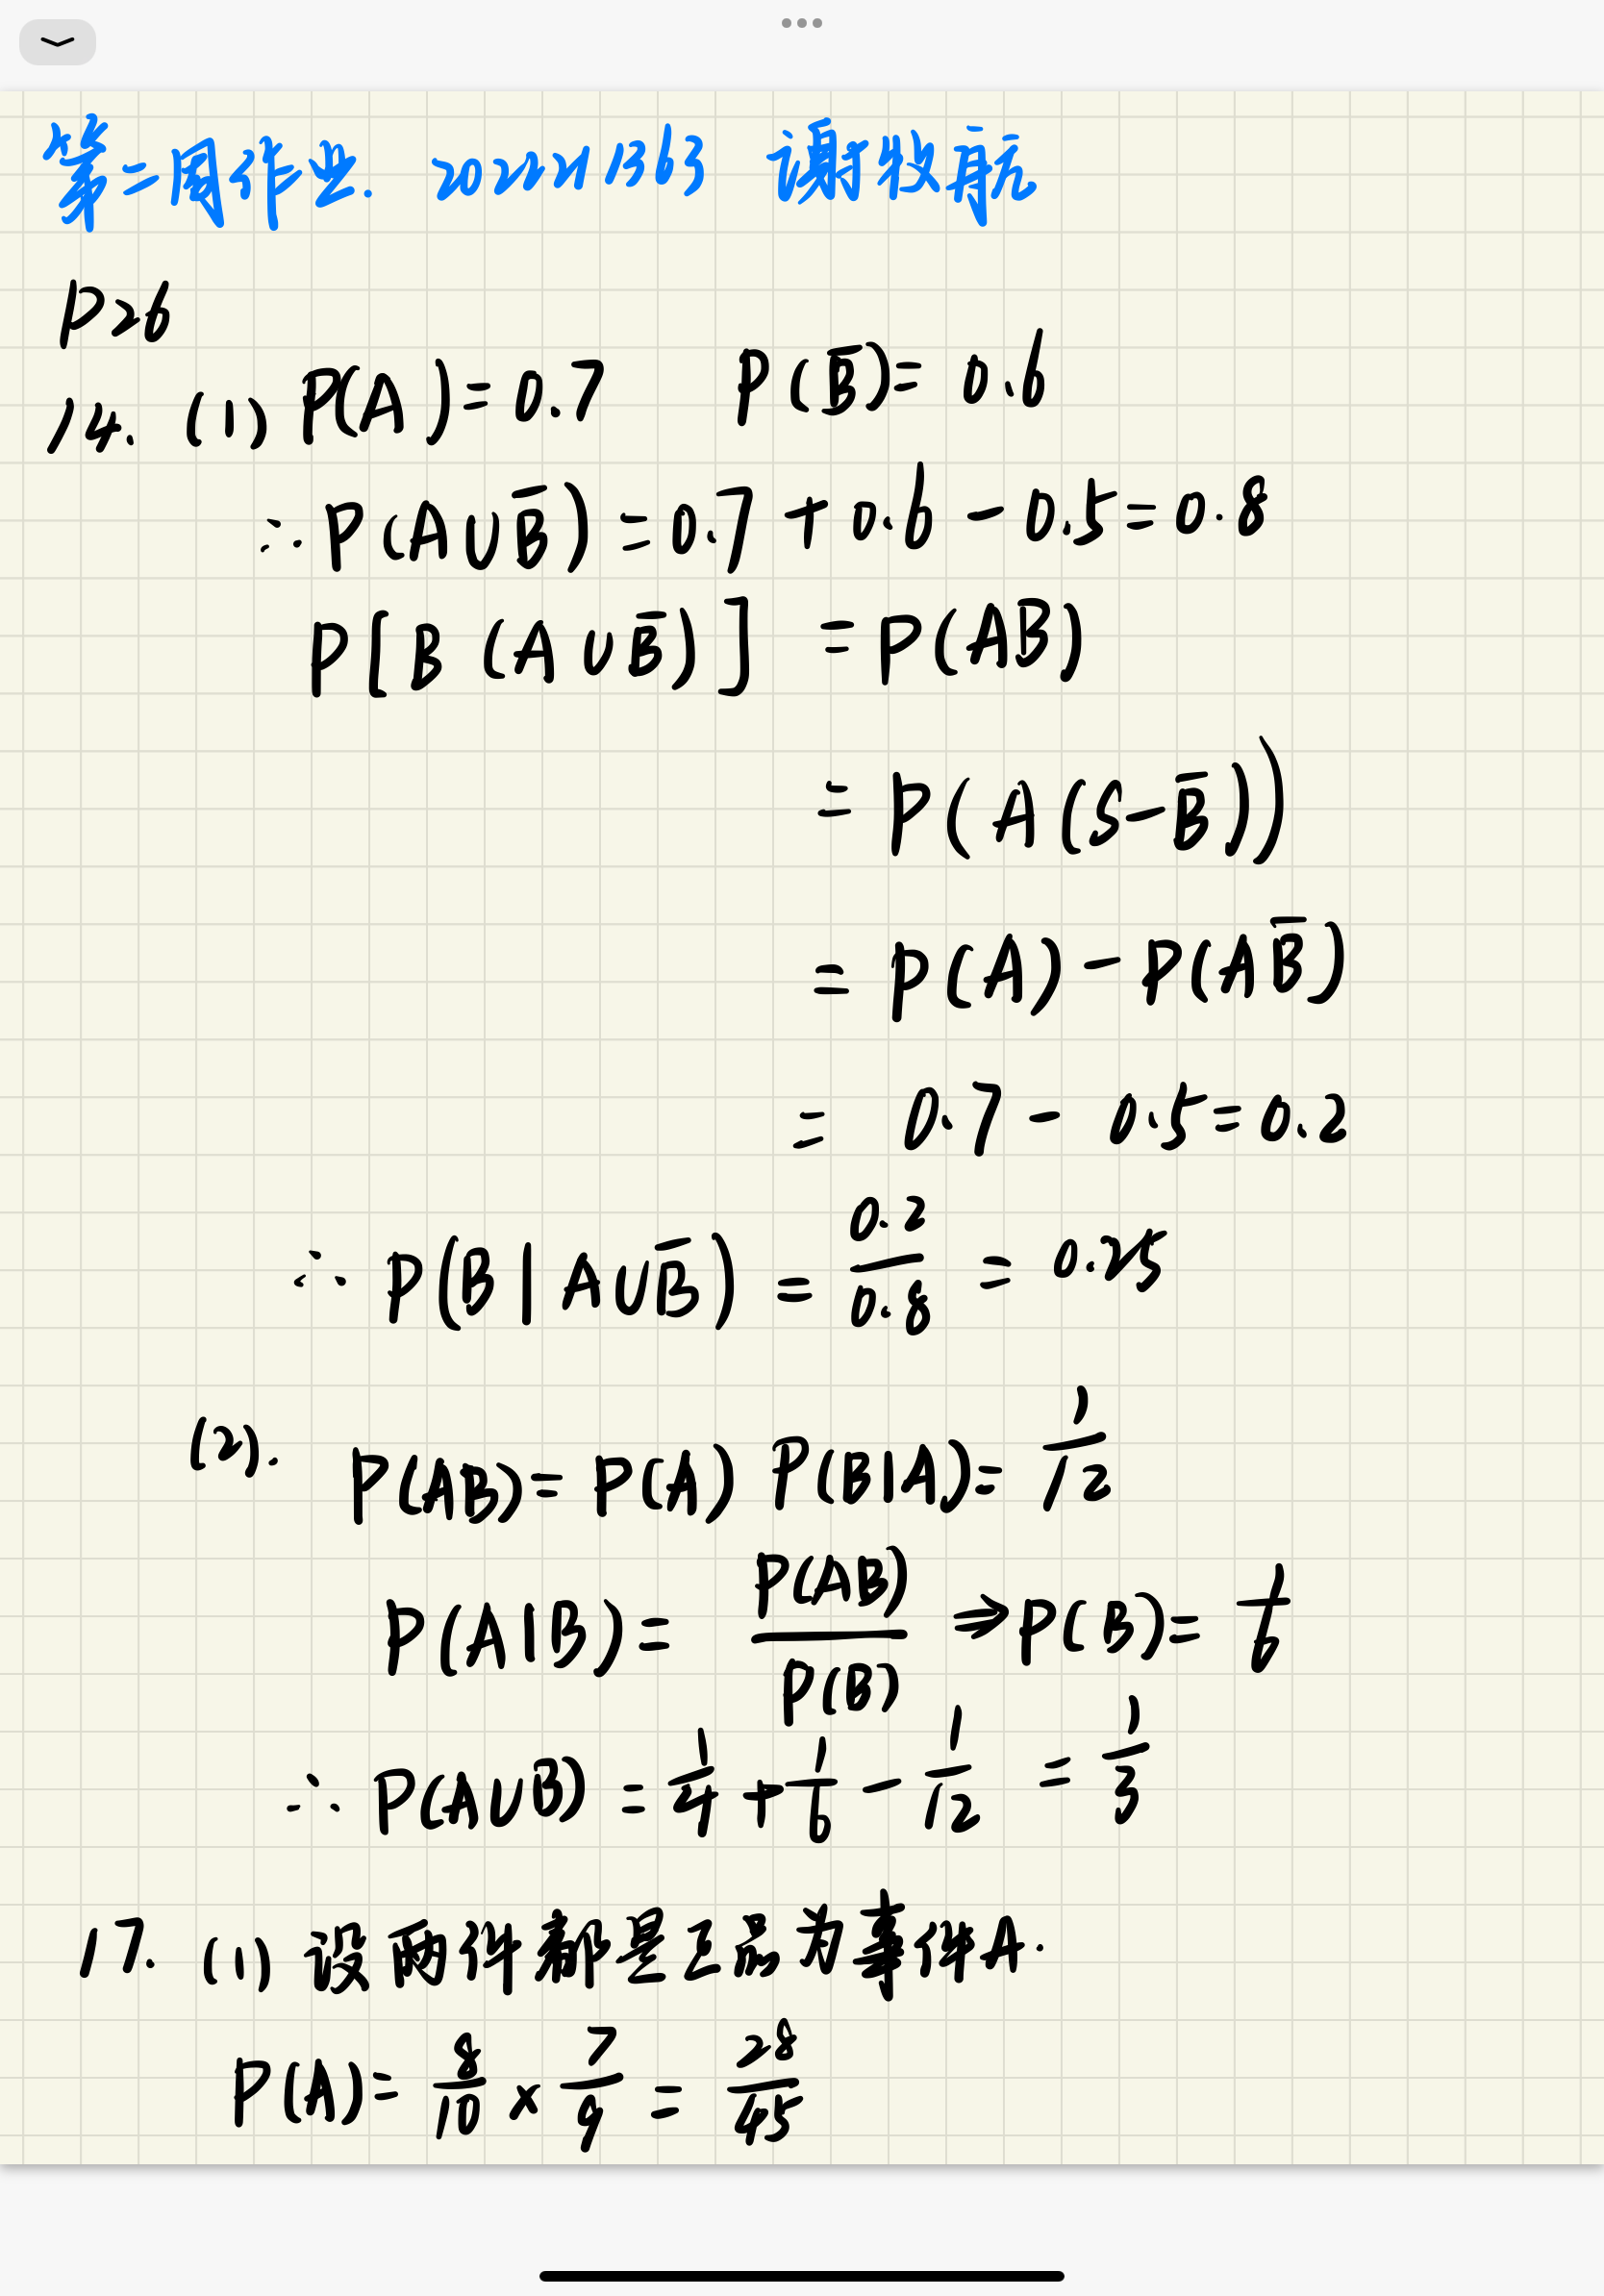 第二周作业. 2022213163 谢牧辰
P26
14. (1) P(A)=0.7 P(B̅)=0.6
∴P(A∪B̅)=0.7+0.6-0.5=0.8
P[B(A∪B̅)] =P(AB)
=P(A(S-B̅))
=P(A)-P(AB̅)
= 0.7-0.5=0.2
∴ P(B|A∪B̅)=0.2/0.8=0.25
(2). P(AB)=P(A)P(B|A)=1/12
P(A|B)=P(AB)/P(B) ⇒P(B)=1/6
∴ P(A∪B)=1/4+1/6-1/12=1/3
17. (1) 设两件都是正品为事件A.
P(A)=8/10×7/9=28/45